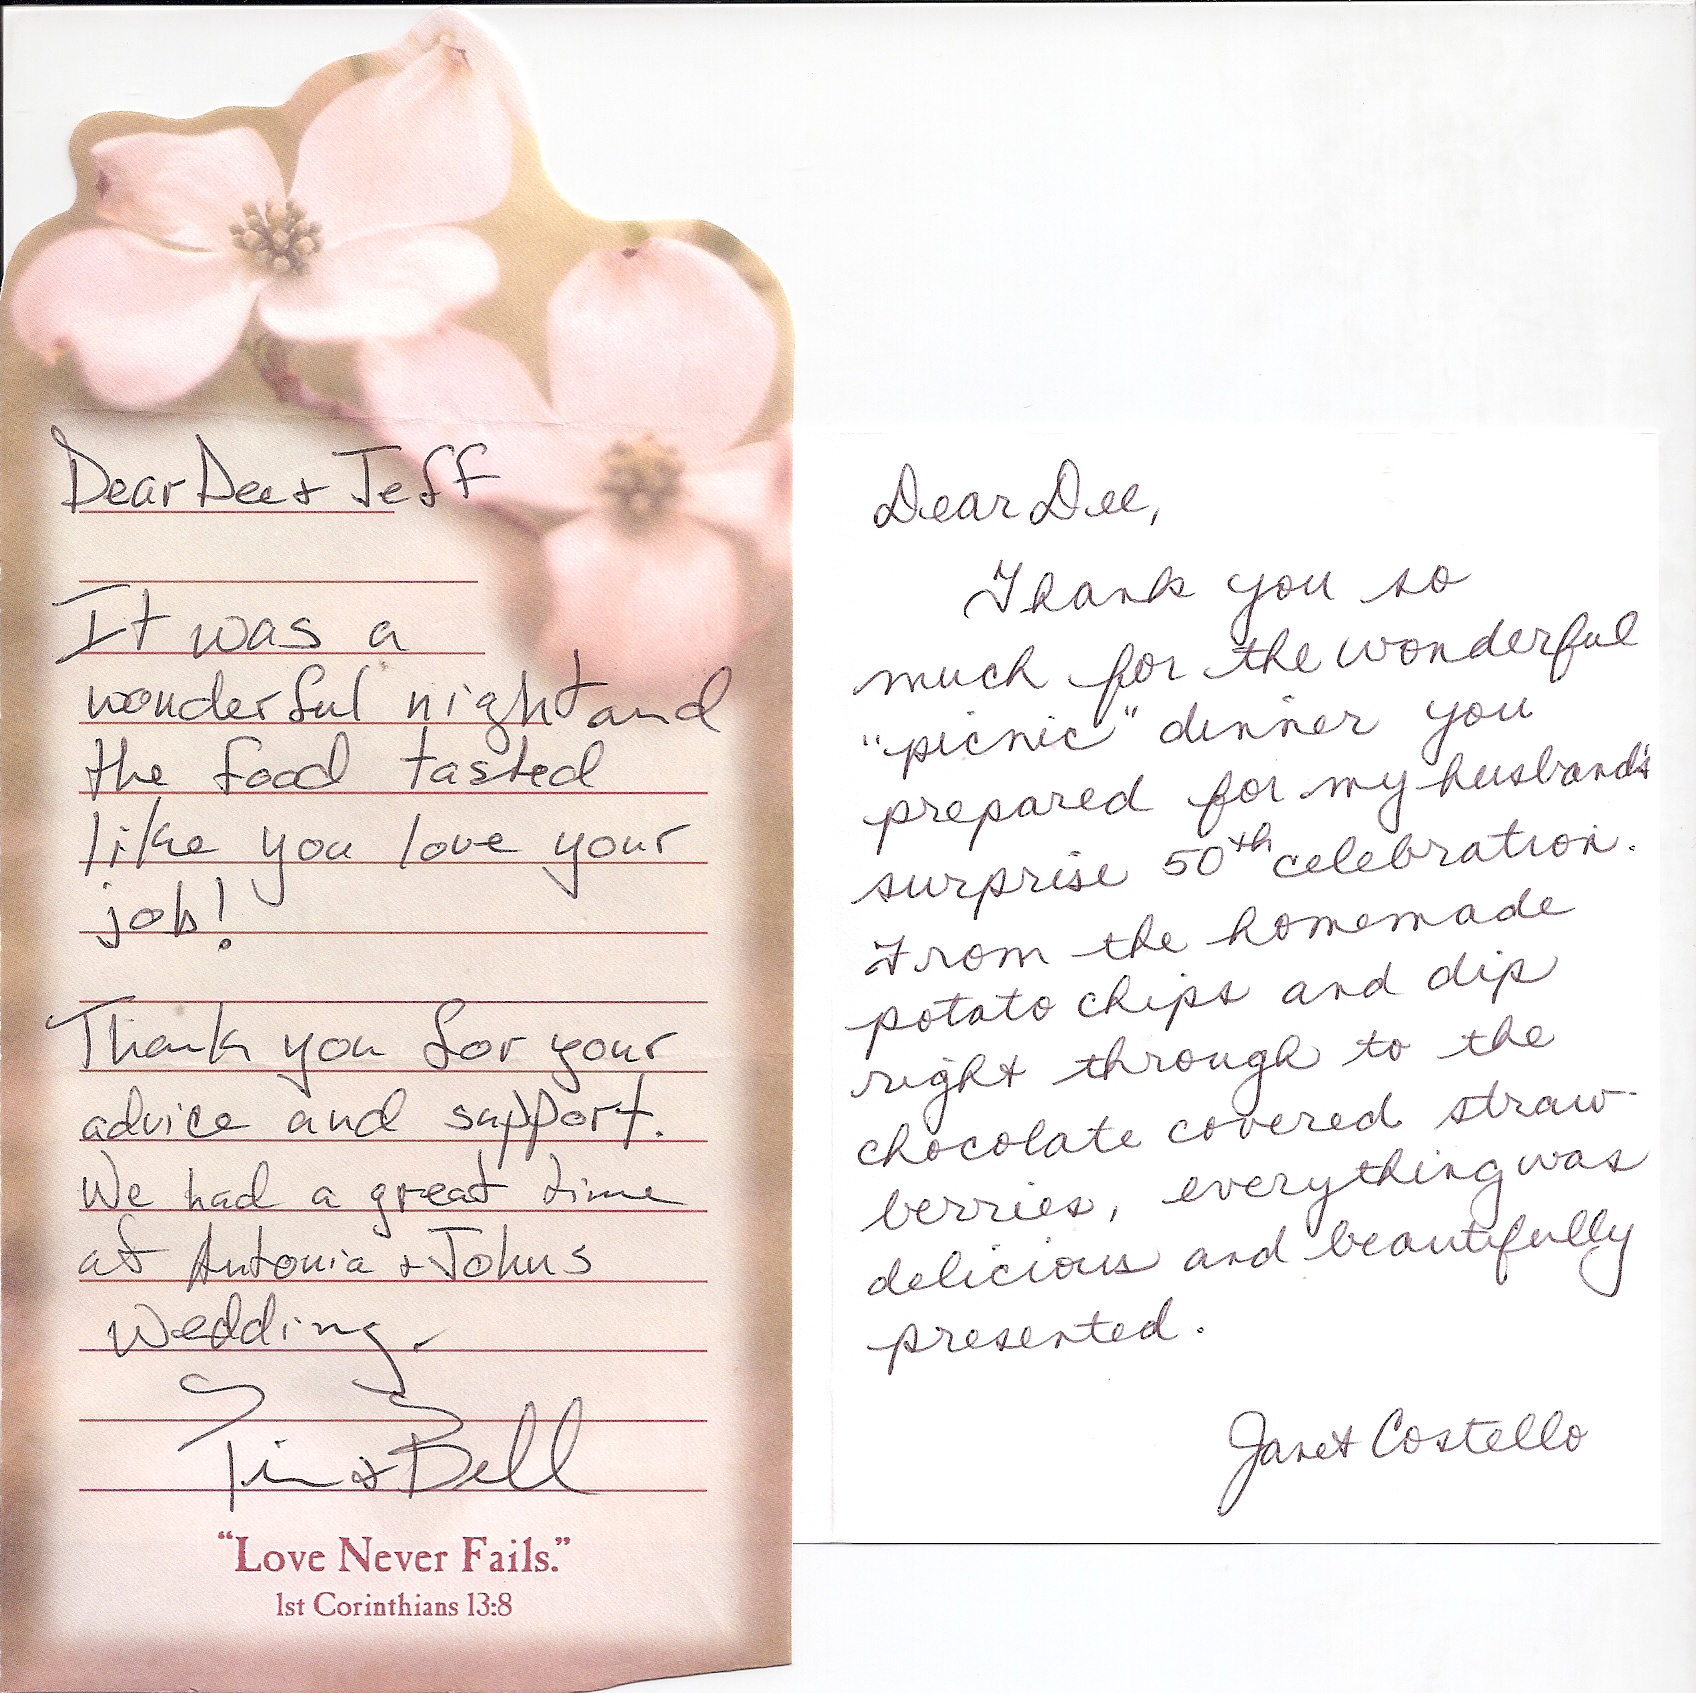 Dear Dee & Jeff
It was a
wonderful night and
the food tasted
like you love your
job!
Thank you for your
advice and support.
We had a great time
at Antonia & Johns
Wedding.
& Bell
"Love Never Fails."
1st Corinthians 13:8
Dear Dee,
Thank you so
much for the wonderful
"picnic" dinner you
prepared for my husband's
surprise 50th celebration.
From the homemade
potato chips and dip
right through to the
chocolate covered straw-
berries, everything was
delicious and beautifully
presented.
Janet Costello